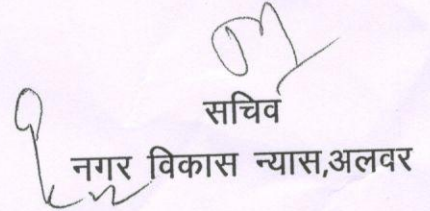 सचिव
नगर विकास न्यास,अलवर